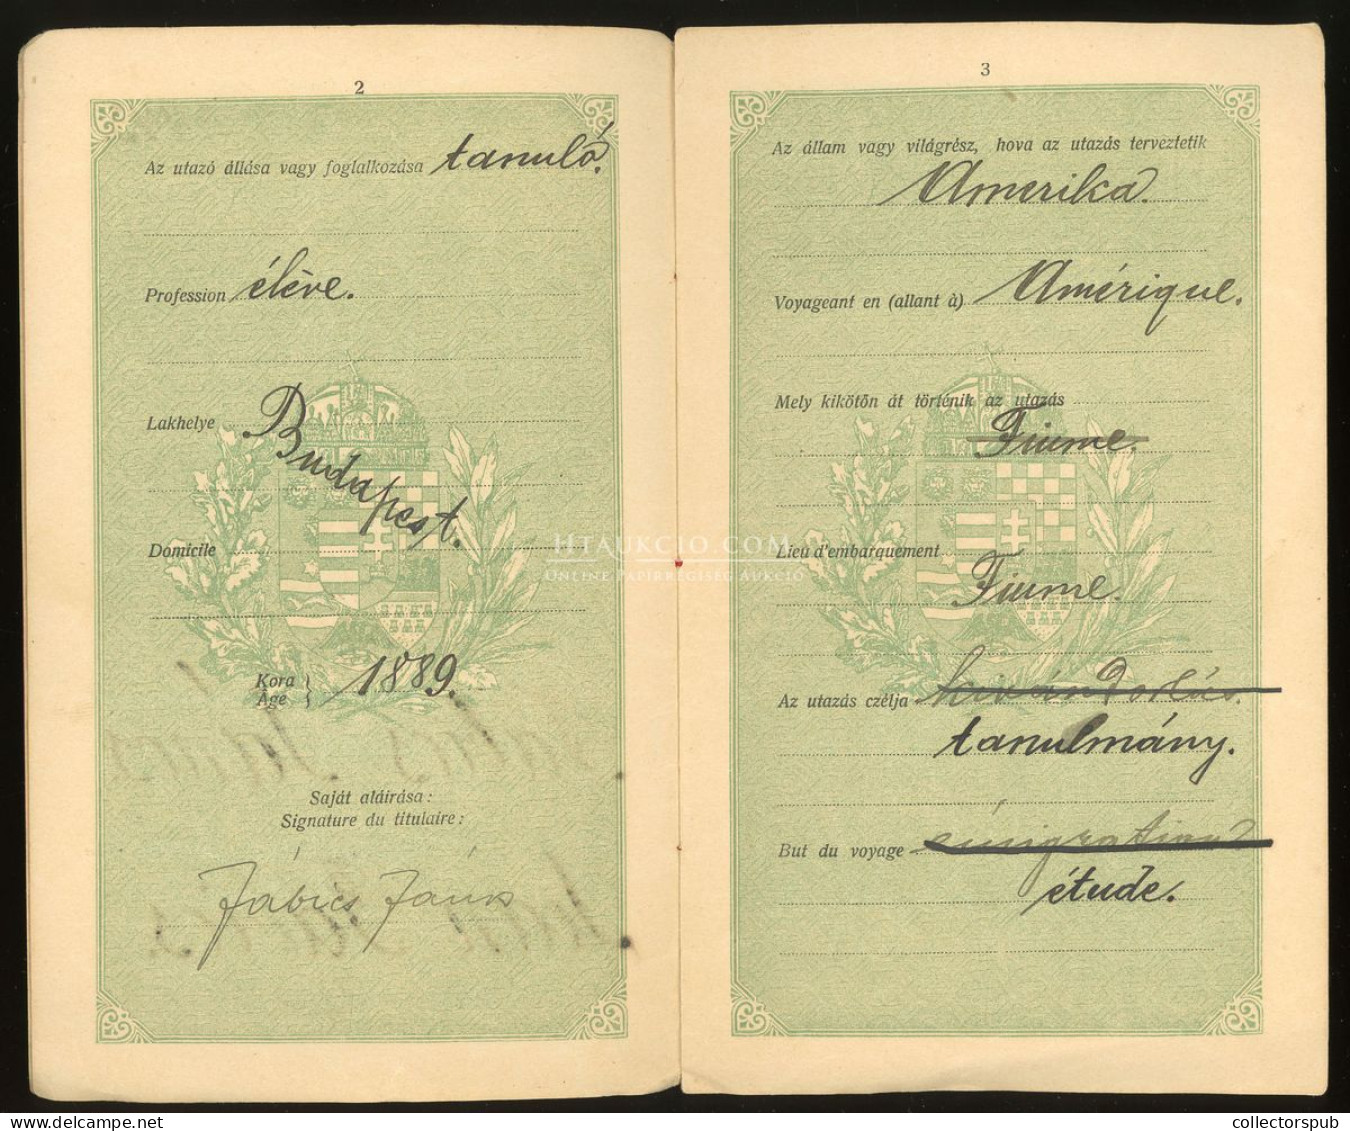 2
Az utazó állása vagy foglalkozása tanuló.
Profession élève.
Lakhelye Budapest.
Domicile
Kora
Age } 1889.
Saját aláirása :
Signature du titulaire :
Jábics János
3
Az állam vagy világrész, hova az utazás terveztetik
Amerika.
Voyageant en (allant à) Amérique.
Mely kikötőn át történik az utazás
Fiume.
Lieu d'embarquement
Fiume.
Az utazás czélja kivándorlás.
tanulmány.
But du voyage émigration
étude.
HTAUKCIO.COM
ONLINE PAPÍRRÉGISÉG AUKCIÓ
collectorspub